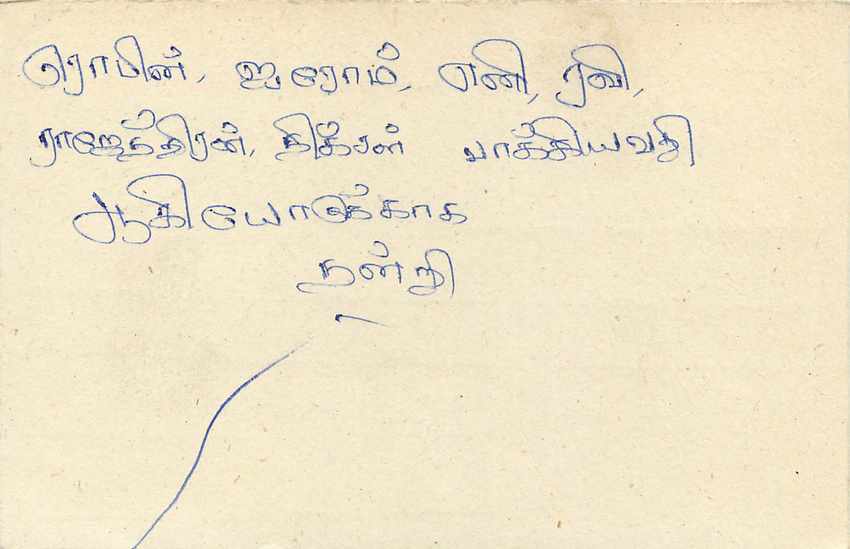 ரொபின், ஐரோம், எனி, ரவி,
ராஜேந்திரன், திக்சன் பாக்கியவதி
ஆகியோருக்காக
நன்றி